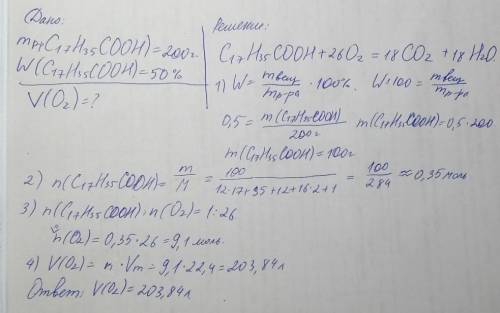 Дано:
mр-р C17H35COOH)=200г
W(C17H35COOH)=50%
V(O2)=?
Решение:
C17H35COOH+26O2=18CO2+18H2O.
1) W=mвещ/mр-ра·100%. W:100=mвещ/mр-ра
0,5=m(C17H35COOH)/200г m(C17H35COOH)=0,5·200
m(C17H35COOH)=100г
2) n(C17H35COOH)=m/M=100/12·17+35+12+16·2+1=100/284≈0,35моль
3) n(C17H35COOH):n(O2)=1:26
n(O2)=0,35·26=9,1моль.
4) V(O2)=n·Vm=9,1·22,4=203,84л
Ответ: V(O2)=203,84л